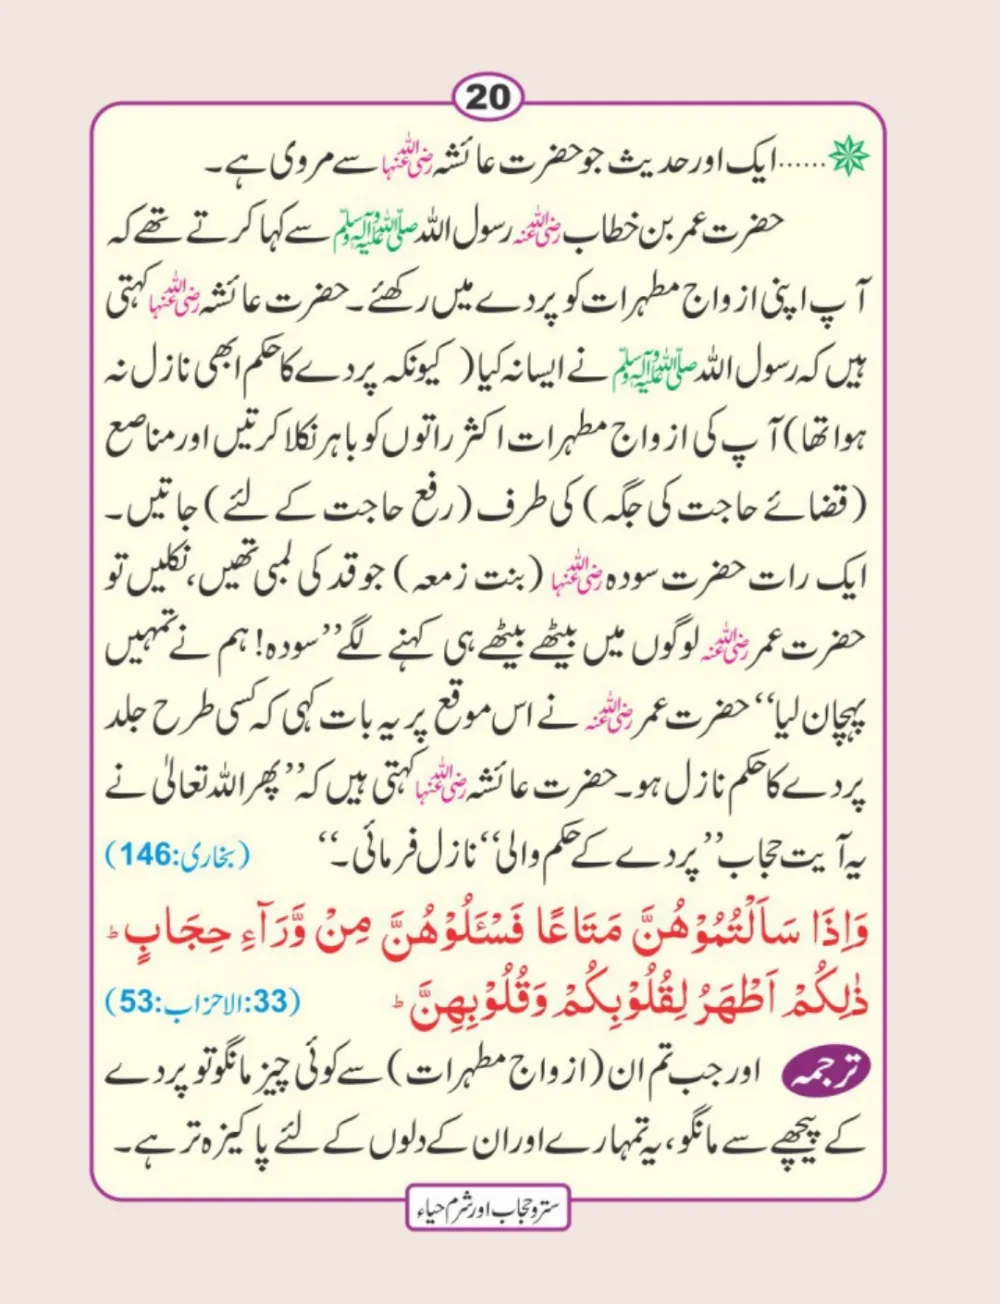 20
......ایک اور حدیث جو حضرت عائشہ رضی اللہ عنہا سے مروی ہے۔
حضرت عمر بن خطاب رضی اللہ عنہ رسول اللہ صلی اللہ علیہ وآلہ وسلم سے کہا کرتے تھے کہ
آپ اپنی ازواج مطہرات کو پردے میں رکھئے۔ حضرت عائشہ رضی اللہ عنہا کہتی
ہیں کہ رسول اللہ صلی اللہ علیہ وآلہ وسلم نے ایسا نہ کیا ( کیونکہ پردے کا حکم ابھی نازل نہ
ہوا تھا) آپ کی ازواج مطہرات اکثر راتوں کو باہر نکلا کرتیں اور مناصع
(قضائے حاجت کی جگہ) کی طرف (رفع حاجت کے لئے) جاتیں۔
ایک رات حضرت سودہ رضی اللہ عنہا (بنت زمعہ) جو قد کی لمبی تھیں، نکلیں تو
حضرت عمر رضی اللہ عنہ لوگوں میں بیٹھے بیٹھے ہی کہنے لگے ’’سودہ! ہم نے تمہیں
پہچان لیا‘‘ حضرت عمر رضی اللہ عنہ نے اس موقع پر یہ بات کہی کہ کسی طرح جلد
پردے کا حکم نازل ہو۔ حضرت عائشہ رضی اللہ عنہا کہتی ہیں کہ ’’پھر اللہ تعالیٰ نے
یہ آیت حجاب ’’پردے کے حکم والی‘‘ نازل فرمائی۔‘‘ (بخاری:146)
وَاِذَا سَاَلْتُمُوْهُنَّ مَتَاعًا فَسْـَٔلُوْهُنَّ مِنْ وَّرَآءِ حِجَابٍ ؕ
ذٰلِكُمْ اَطْهَرُ لِقُلُوْبِكُمْ وَقُلُوْبِهِنَّ ؕ (33:الاحزاب:53)
ترجمہ اور جب تم ان (ازواج مطہرات) سے کوئی چیز مانگو تو پردے
کے پیچھے سے مانگو، یہ تمہارے اور ان کے دلوں کے لئے پاکیزہ تر ہے۔
ستر و حجاب اور شرم حیاء